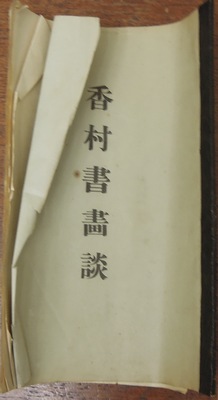 香村書畵談